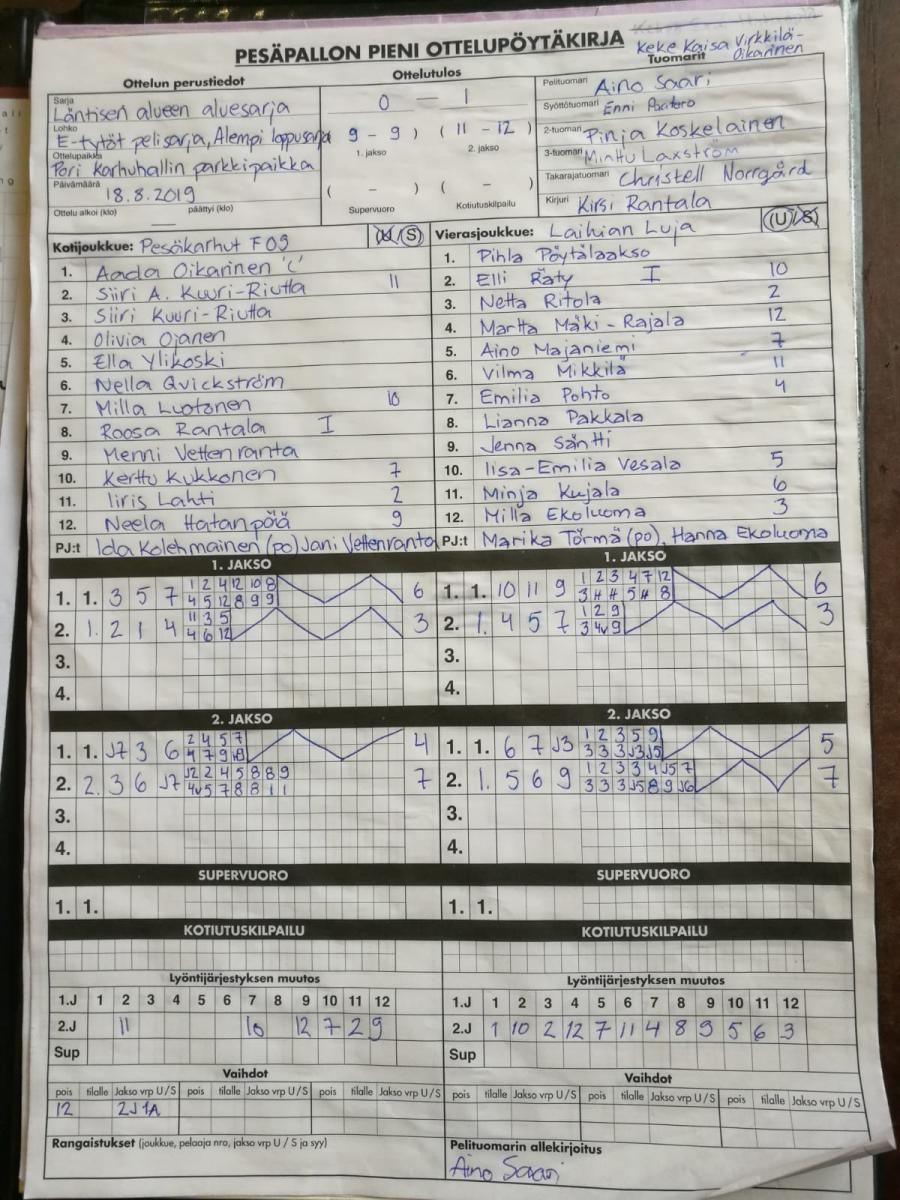 PESÄPALLON PIENI OTTELUPÖYTÄKIRJA
Keke Kaisa Virkkilä-Oikarinen
Ottelun perustiedot
Ottelutulos
Tuomarit
Sarja Läntisen alueen aluesarja
0 – 1
Pelituomari Aino Saari
Lohko E-tytöt pelisarja, Alempi loppusarja
9 – 9 ) ( 11 – 12 )
1. jakso 2. jakso
Syöttötuomari Enni
Ottelupaikka Pori Karhuhallin parkkipaikka
2-tuomari Pinja Koskelainen
3-tuomari Minttu Laxström
Päivämäärä 18.8.2019
( – ) ( – )
Takarajatuomari Christell Norrgård
Ottelu alkoi (klo) — päättyi (klo)
Supervuoro Kotiutuskilpailu
Kirjuri Kirsi Rantala
Kotijoukkue: Pesäkarhut F09 (U/S)
Vierasjoukkue: Laihian Luja (U/S)
1. Aada Oikarinen 'C'
2. Siiri A. Kuuri-Riutta 11
3. Siiri Kuuri-Riutta
4. Olivia Ojanen
5. Ella Ylikoski
6. Nella Qvickström
7. Milla Luotonen 10
8. Roosa Rantala I
9. Menni Vettenranta
10. Kerttu Kukkonen 7
11. Iiris Lahti 2
12. Neela Hatanpää 9
PJ:t Ida Kolehmainen (po) Jani Vettenranta
1. Pihla Pöytälaakso
2. Elli Räty I 10
3. Netta Ritola 2
4. Martta Mäki-Rajala 12
5. Aino Majaniemi 7
6. Vilma Mikkilä 11
7. Emilia Pohto 4
8. Lianna Pakkala
9. Jenna Säntti
10. Iisa-Emilia Vesala 5
11. Minja Kujala 6
12. Milla Ekoluoma 3
PJ:t Marika Törmä (po), Hanna Ekoluoma
1. JAKSO
1. 1. 3 5 7 1 2 4 12 10 8 6
4 5 12 8 9 9
2. 1. 2 1 4 11 3 5 3
4 6 12
3.
4.
1. JAKSO
1. 1. 10 11 9 1 2 3 4 7 12 6
2. 1. 4 5 7 1 2 9 3
3 4v 9
3.
4.
2. JAKSO
1. 1. J7 3 6 2 4 5 7 4
2. 2. 3 6 J7 J2 2 4 5 8 8 9 7
4v 5 7 8 8 1 1
3.
4.
2. JAKSO
1. 1. 6 7 J3 1 2 3 5 9 5
3 3 3 J3 J5
2. 1. 5 6 9 1 2 3 3 4 J5 7 7
3 3 3 J5 8 9 J6
3.
4.
SUPERVUORO
1. 1.
SUPERVUORO
1. 1.
KOTIUTUSKILPAILU
KOTIUTUSKILPAILU
Lyöntijärjestyksen muutos
1.J 1 2 3 4 5 6 7 8 9 10 11 12
2.J 11 10 12 7 2 9
Sup
Lyöntijärjestyksen muutos
1.J 1 2 3 4 5 6 7 8 9 10 11 12
2.J 1 10 2 12 7 11 4 8 9 5 6 3
Sup
Vaihdot
pois tilalle Jakso vrp U/S pois tilalle Jakso vrp U/S pois tilalle Jakso vrp U/S
12 2J1A
Vaihdot
pois tilalle Jakso vrp U/S pois tilalle Jakso vrp U/S pois tilalle Jakso vrp U/S
Rangaistukset (joukkue, pelaaja nro, jakso vrp U / S ja syy)
Pelituomarin allekirjoitus
Aino Saari